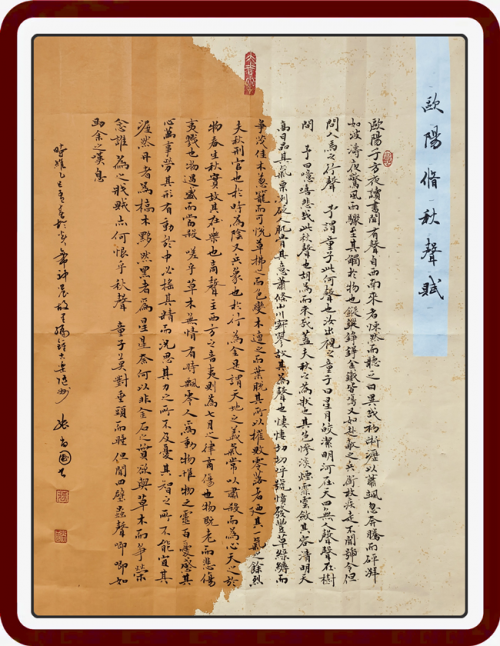 歐陽脩秋聲賦
歐陽子方夜讀書聞有聲自西南來者悚然而聽之曰異哉初淅瀝以蕭颯忽奔騰而砰湃
如波濤夜驚風雨驟至其觸於物也鏦鏦錚錚金鐵皆鳴又如赴敵之兵銜枚疾走不聞號令但
聞人馬之行聲 予謂童子此何聲也汝出視之童子曰星月皎潔明河在天四無人聲聲在樹
間 予曰噫嘻悲哉此秋聲也胡為而來哉蓋夫秋之為狀也其色慘淡煙霏雲斂其容清明天
高日晶其氣栗冽砭人肌骨其意蕭條山川寂寥故其為聲也悽悽切切呼號憤發豐草綠縟而
爭茂佳木蔥蘢而可悅草拂之而色變木遭之而葉脫其所以摧敗零落者乃其一氣之餘烈
夫秋刑官也於時為陰又兵象也於行為金是謂天地之義氣常以肅殺而為心天之於
物春生秋實故其在樂也商聲主西方之音夷則為七月之律商傷也物既老而悲傷
夷戮也物過盛而當殺 嗟乎草木無情有時飄零人為動物惟物之靈百憂感其
心萬事勞其形有動於中必搖其精而況思其力之所不及憂其智之所不能宜其
渥然丹者為槁木黟然黑者為星星奈何以非金石之質欲與草木而爭榮
念誰為之戕賊亦何恨乎秋聲 童子莫對垂頭而睡但聞四壁蟲聲唧唧如
助余之嘆息
時維乙